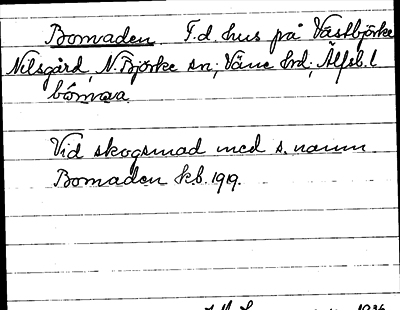 Bomaden. F.d. hus på Västbjörke
Nilsgård, N. Björke sn; Väne hrd; Älfsb. l
bómava
Vid skogsmad med s. namn
Bomaden k.b. 1919.